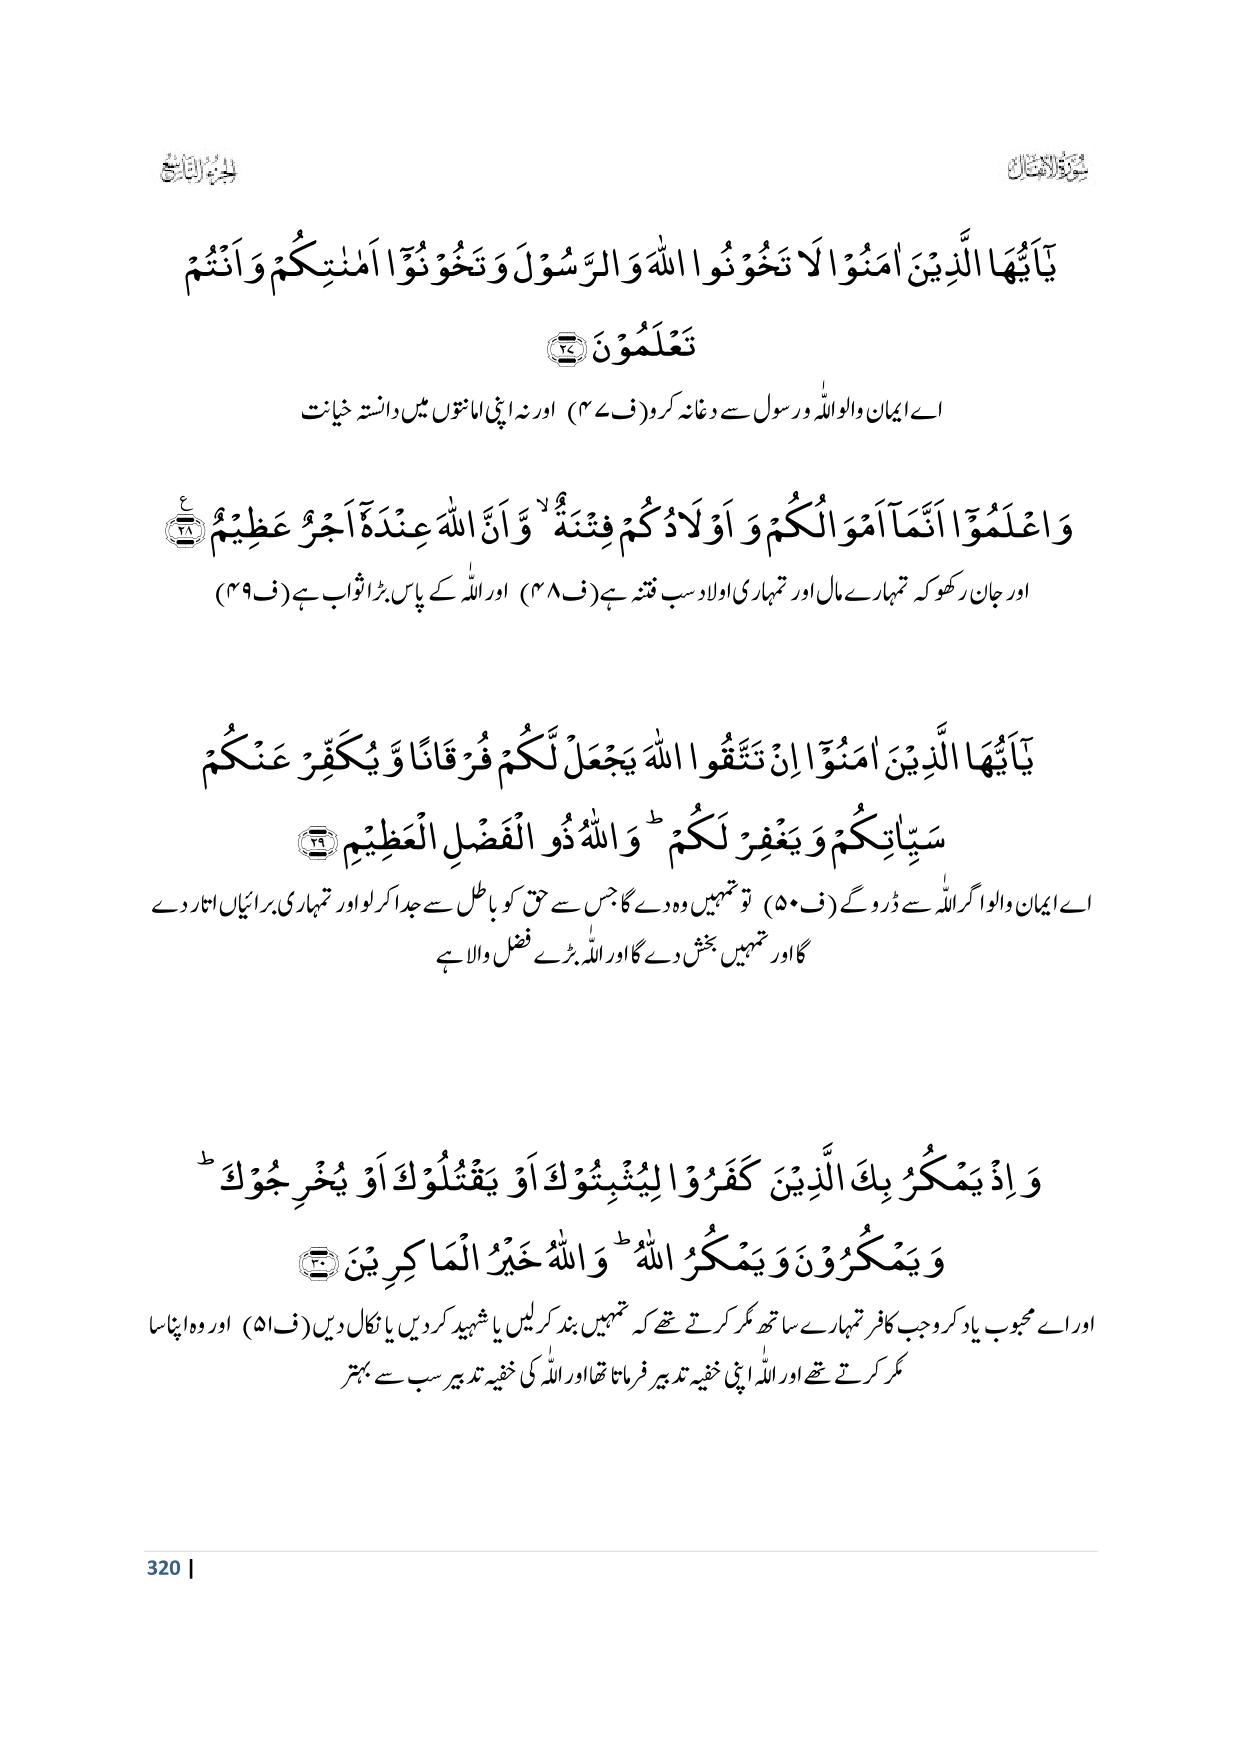 سُوْرَةُ الْاَنْفَال
الجزء التاسع
یٰۤاَیُّهَا الَّذِیْنَ اٰمَنُوْا لَا تَخُوْنُوا اللّٰهَ وَ الرَّسُوْلَ وَ تَخُوْنُوْۤا اَمٰنٰتِكُمْ وَ اَنْتُمْ
تَعْلَمُوْنَ ﴿۲۷﴾
اے ایمان والو اللّٰہ و رسول سے دغا نہ کرو (ف۴۷) اور نہ اپنی امانتوں میں دانستہ خیانت
وَ اعْلَمُوْۤا اَنَّمَاۤ اَمْوَالُكُمْ وَ اَوْلَادُكُمْ فِتْنَةٌ ۙ وَّ اَنَّ اللّٰهَ عِنْدَهٗۤ اَجْرٌ عَظِیْمٌ ﴿۲۸﴾ ع
اور جان رکھو کہ تمہارے مال اور تمہاری اولاد سب فتنہ ہے (ف۴۸) اور اللّٰہ کے پاس بڑا ثواب ہے (ف۴۹)
یٰۤاَیُّهَا الَّذِیْنَ اٰمَنُوْۤا اِنْ تَتَّقُوا اللّٰهَ یَجْعَلْ لَّكُمْ فُرْقَانًا وَّ یُكَفِّرْ عَنْكُمْ
سَیِّاٰتِكُمْ وَ یَغْفِرْ لَكُمْ ؕ وَ اللّٰهُ ذُو الْفَضْلِ الْعَظِیْمِ ﴿۲۹﴾
اے ایمان والو اگر اللّٰہ سے ڈرو گے (ف۵۰) تو تمہیں وہ دے گا جس سے حق کو باطل سے جدا کر لو اور تمہاری برائیاں اتار دے
گا اور تمہیں بخش دے گا اور اللّٰہ بڑے فضل والا ہے
وَ اِذْ یَمْكُرُ بِكَ الَّذِیْنَ كَفَرُوْا لِیُثْبِتُوْكَ اَوْ یَقْتُلُوْكَ اَوْ یُخْرِجُوْكَ ؕ
وَ یَمْكُرُوْنَ وَ یَمْكُرُ اللّٰهُ ؕ وَ اللّٰهُ خَیْرُ الْمَاكِرِیْنَ ﴿۳۰﴾
اور اے محبوب یاد کرو جب کافر تمہارے ساتھ مکر کرتے تھے کہ تمہیں بند کر لیں یا شہید کر دیں یا نکال دیں (ف۵۱) اور وہ اپنا سا
مکر کرتے تھے اور اللّٰہ اپنی خفیہ تدبیر فرماتا تھا اور اللّٰہ کی خفیہ تدبیر سب سے بہتر
320 |